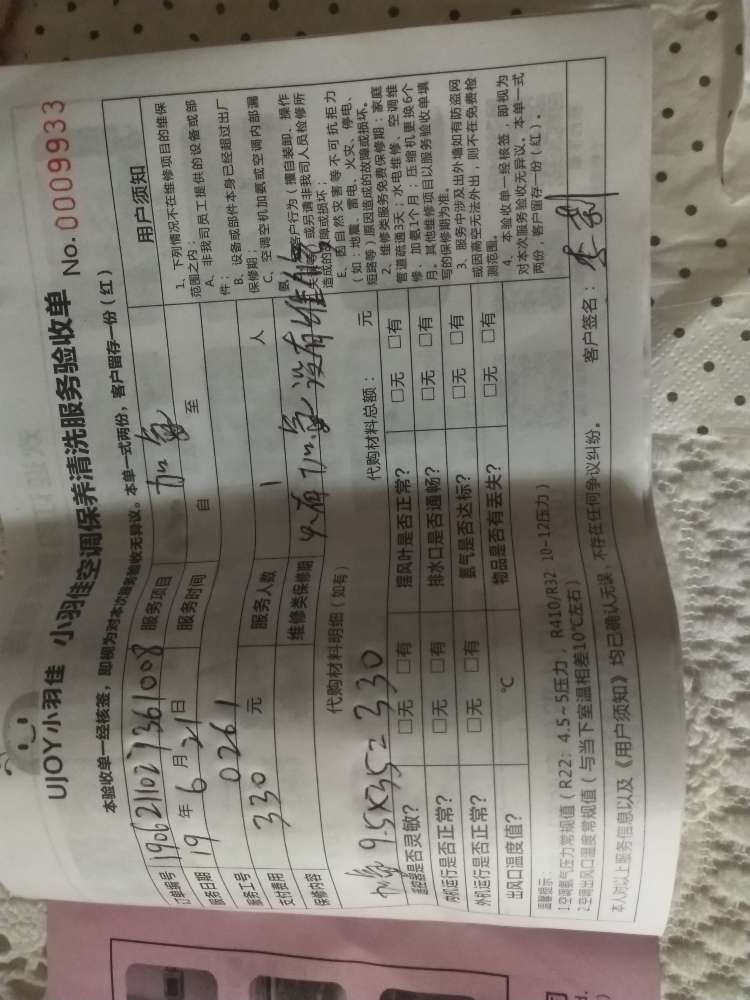 UJOY小羽佳 小羽佳空调保养清洗服务验收单 No. 0009933
本验收单一经核签，即视为对本次服务验收无异议。本单一式两份，客户留存一份（红）
订单编号 1906211027361008 服务项目 加氨
服务日期 19 年 6 月 21 日 服务时间 自 至
服务工号 0261
支付费用 330 元 服务人数 1 人
保修内容 维修类保修期 只有加氨 没有维修
代购材料明细（如有） 代购材料总额： 元
加氨 9.5×35=330
遥控器是否灵敏？ □无 □有 摆风叶是否正常？ □无 □有
内机运行是否正常？ □无 □有 排水口是否通畅？ □无 □有
外机运行是否正常？ □无 □有 氨气是否达标？ □无 □有
出风口温度值？ ℃ 物品是否有丢失？ □无 □有
用户须知
1、下列情况不在维修项目的维保
范围之内：
A、非我司员工提供的设备或部
件；
B、设备或部件本身已经超过出厂
保修期；
C、空调空机加氨或空调内部漏
氨
客户行为（擅自装卸、操作
或另请非我司人员检修所
造成的故障或损坏；
E、因自然灾害等不可抗拒力
（如：地震、雷电、火灾、停电、
短路等）原因造成的故障或损坏。
2、维修类服务免费保修期：家庭
管道疏通3天；水电维修、空调维
修：加氨1个月；压缩机更换6个
月。其他维修项目以服务验收单填
写的保修期为准。
3、服务中涉及出外墙如有防盗网
或因高空无法外出，则不在免费检
测范围。
4、本验收单一经核签，即视为
对本次服务验收无异议。本单一式
两份，客户留存一份（红）。
温馨提示：
1空调氨气压力常规值（R22：4.5~5压力，R410/R32 10-12压力）
2空调出风口温度常规值（与当下室温相差10℃左右）
本人对以上服务信息以及《用户须知》均已确认无误，不存在任何争议纠纷。 客户签名：